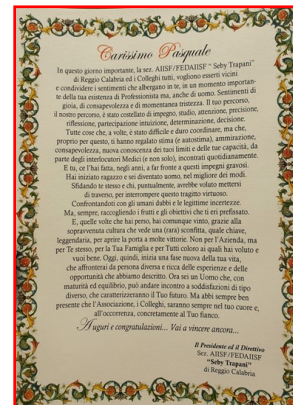 Carissimo Pasquale
In questo giorno importante, la sez. AIISF/FEDAIISF " Seby Trapani"
di Reggio Calabria ed i Colleghi tutti, vogliono esserti vicini
e condividere i sentimenti che albergano in te, in un momento importan-
te della tua esistenza di Professionista ma, anche di uomo. Sentimenti di
gioia, di consapevolezza e di momentanea tristezza. Il tuo percorso,
il nostro percorso, è stato costellato di impegno, studio, attenzione, precisione,
riflessione, partecipazione intuizione, determinazione, decisione.
Tutte cose che, a volte, è stato difficile e duro coordinare, ma che,
proprio per questo, ti hanno regalato stima (e autostima), ammirazione,
consapevolezza, nuova conoscenza dei tuoi limiti e delle tue capacità, da
parte degli interlocutori Medici (e non solo), incontrati quotidianamente.
E tu, ce l'hai fatta, negli anni, a far fronte a questi impegni gravosi.
Hai iniziato ragazzo e sei diventato uomo, nel migliore dei modi.
Sfidando te stesso e chi, puntualmente, avrebbe voluto mettersi
di traverso, per interrompere questo tragitto virtuoso.
Confrontandoti con gli umani dubbi e le legittime incertezze.
Ma, sempre, raccogliendo i frutti e gli obiettivi che ti eri prefissato.
E, quelle volte che hai perso, hai comunque vinto, grazie alla
sopravvenuta cultura che vede una (rara) sconfitta, quale chiave,
leggendaria, per aprire la porta a molte vittorie. Non per l'Azienda, ma
per Te stesso, per la Tua Famiglia e per Tutti coloro ai quali hai voluto e
vuoi bene. Oggi, quindi, inizia una fase nuova della tua vita,
che affronterai da persona diversa e ricca delle esperienze e delle
opportunità che abbiamo descritto. Ora sei un Uomo che, con
maturità ed equilibrio, può andare incontro a soddisfazioni di tipo
diverso, che caratterizzeranno il Tuo futuro. Ma abbi sempre ben
presente che l'Associazione, i Colleghi, saranno sempre nel tuo cuore e,
all'occorrenza, concretamente al Tuo fianco.
Auguri e congratulazioni... Vai a vincere ancora...
Il Presidente ed il Direttivo
Sez. AIISF/FEDAIISF
"Seby Trapani"
di Reggio Calabria